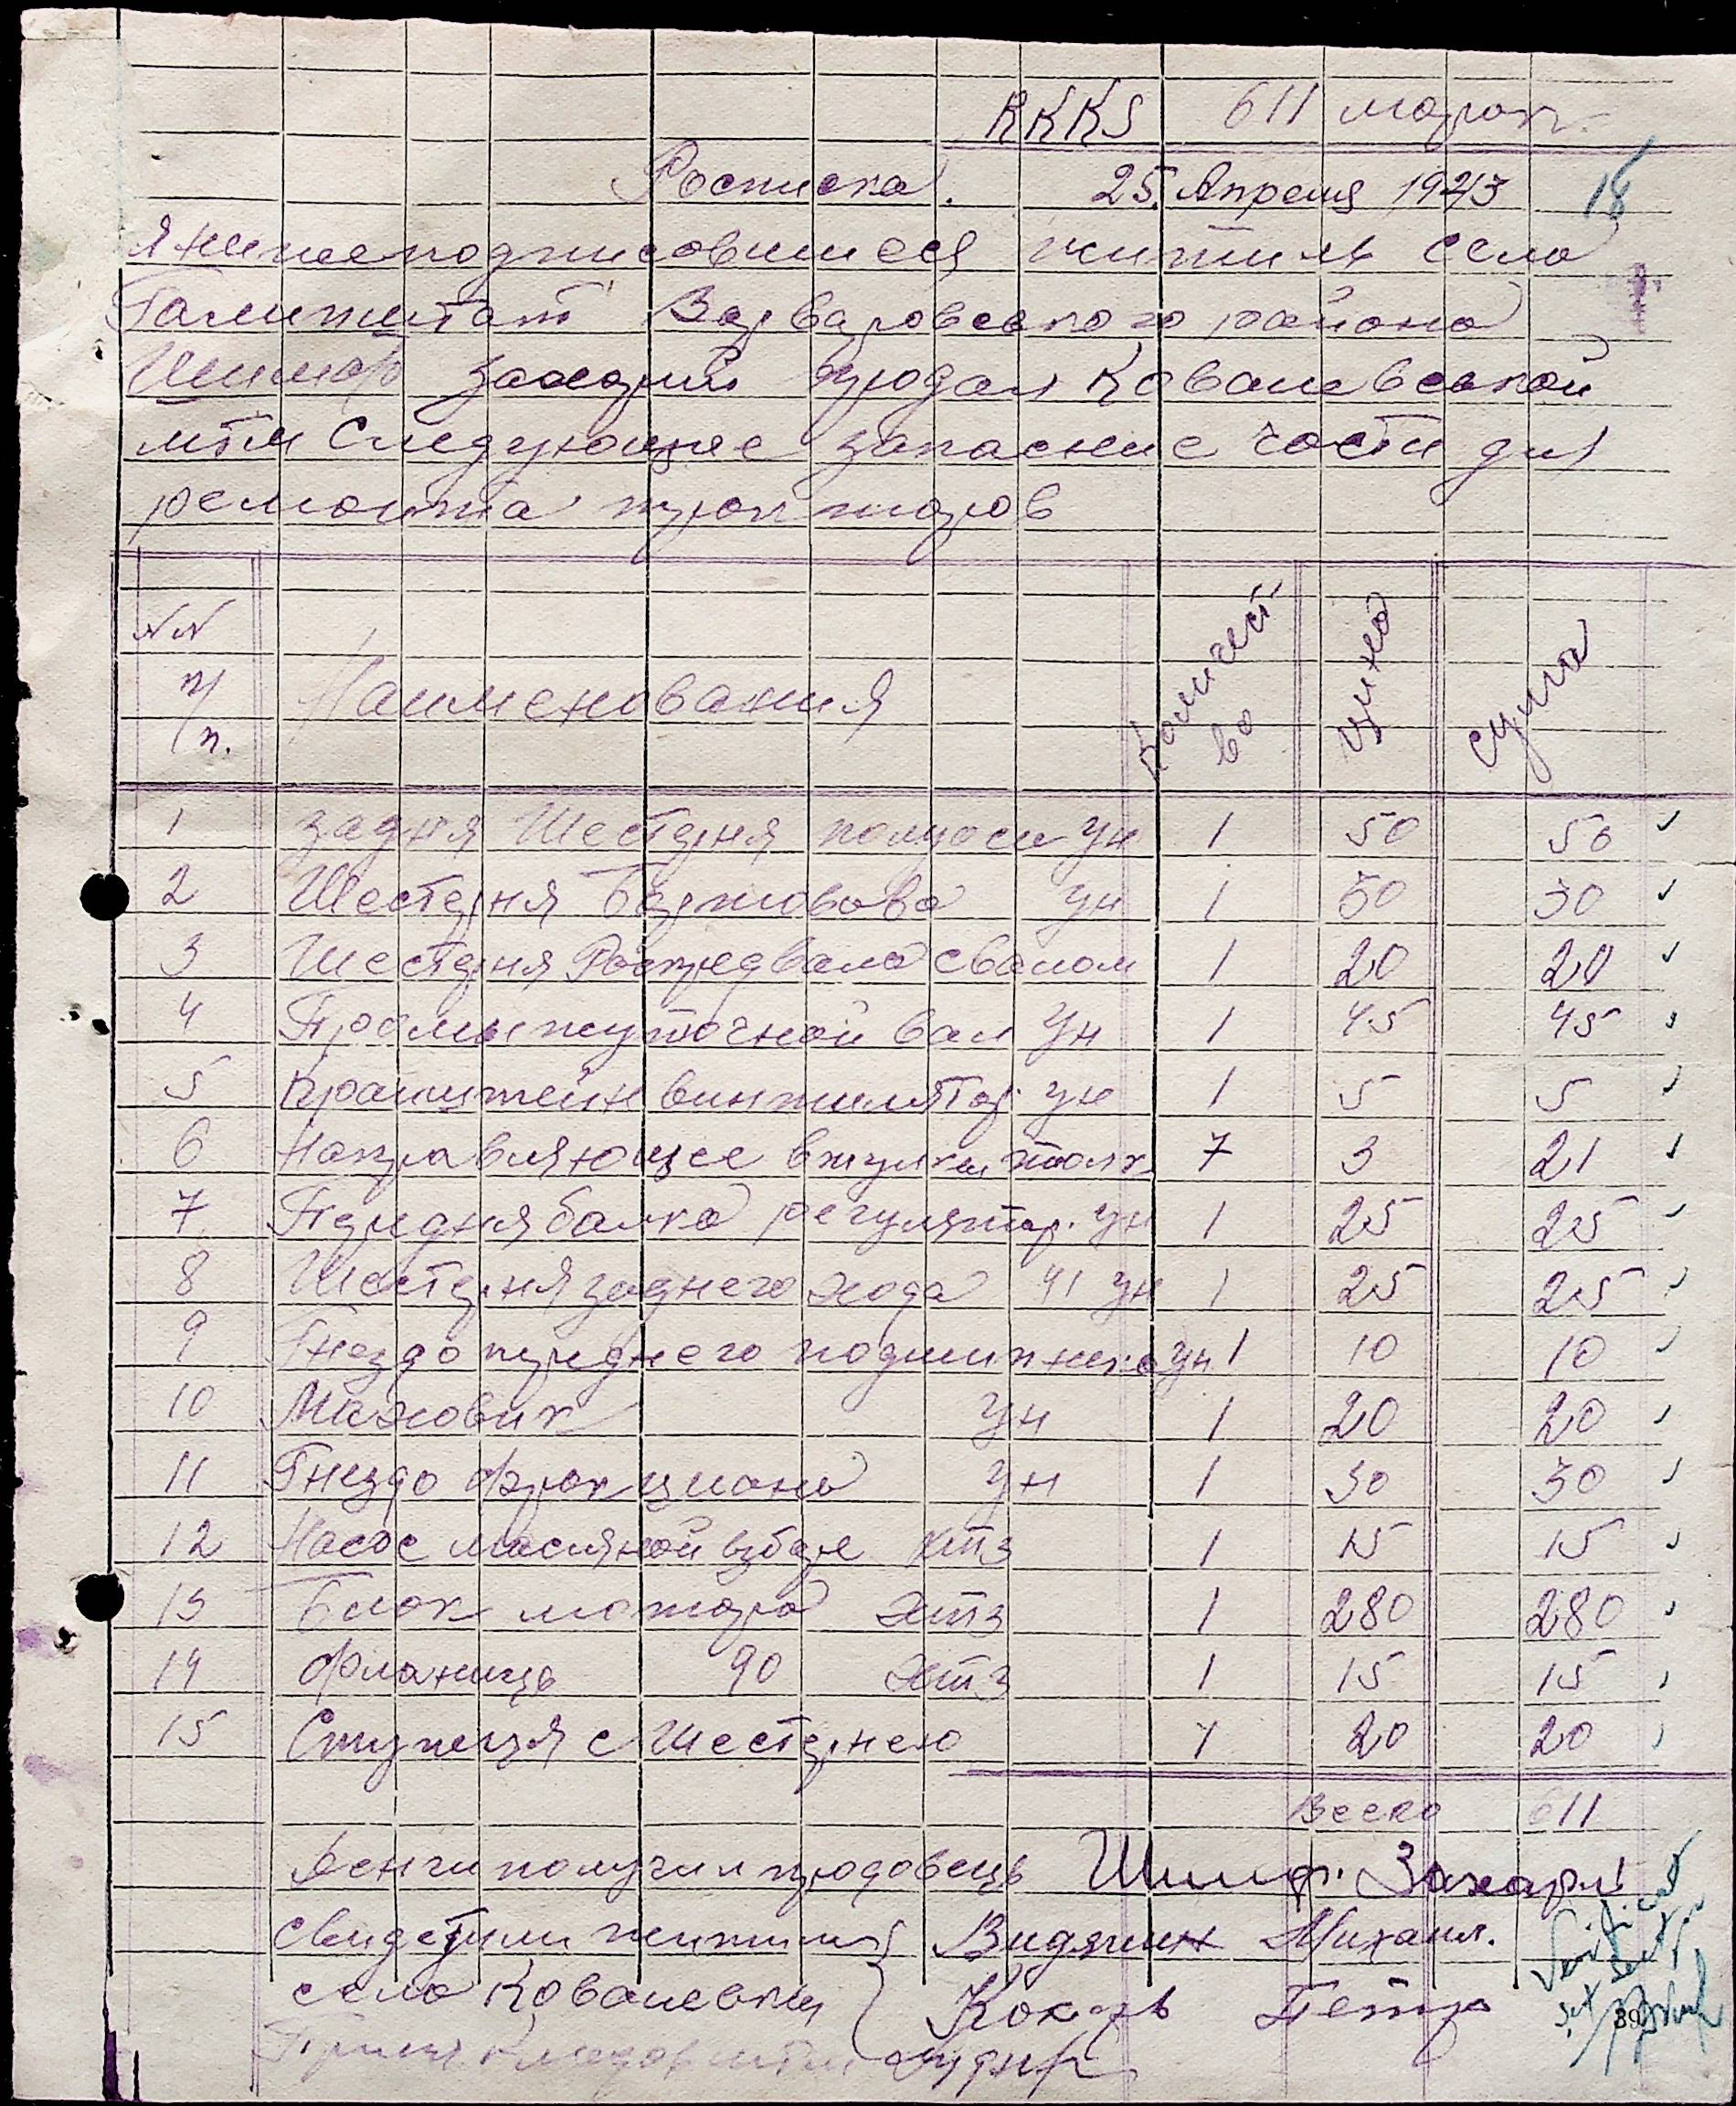 RKKS 611 марок.
Росписка. 25. Апреля 1943 18
Я нижеподписовшиеся житиль село
Галиштат Варваровского района
Шимф Захарий продал Ковалевской
мтм Следующее запасние части для
ремонта тракторов
NN п/п. Наименования Количество цина сума
1 задня Шестерня полуоси Ун 1 50 50
2 Шестерня Бартовова Ун 1 30 30
3 Шестерня Роспредвала свалом 1 20 20
4 Промыжуточной вал Ун 1 45 45
5 кранштейн винтилятор. Ун 1 5 5
6 Направляющее втулки толк 7 3 21
7 Передня балка регулятор. Ун 1 25 25
8 Шестерня заднего хода 41 Ун 1 25 25
9 Гнездо переднего подшипнека Ун 1 10 10
10 Маховик Ун 1 20 20
11 Гнездо фракциона Ун 1 30 30
12 Насос масляной взборе хтз 1 15 15
13 Блок мотора хтз 1 280 280
14 фланиць 90 хтз 1 15 15
15 Ступеця с Шестернею 1 20 20
Всего 611
Денги получил продовець Шимф. Захари
Свидетили жители Видягин Михаил.
село Ковалевки } Кокарь Петро
Принял
Verificat
39